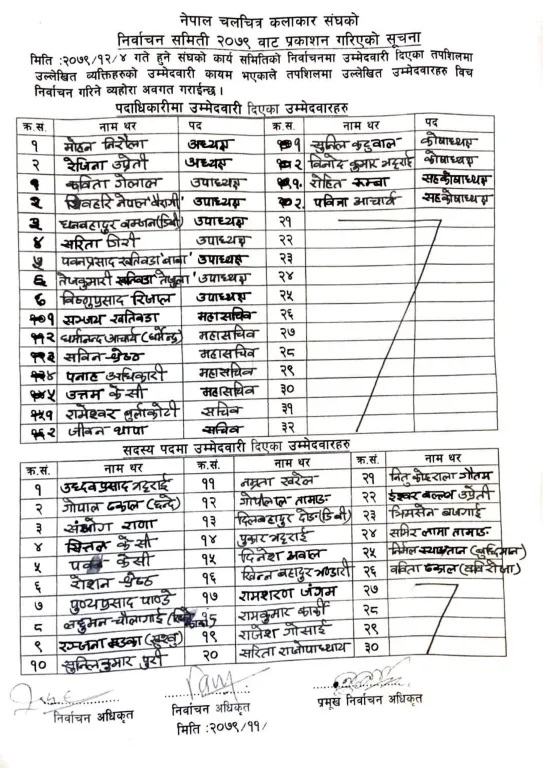 नेपाल चलचित्र कलाकार संघको
निर्वाचन समिती २०७९ बाट प्रकाशन गरिएको सूचना
मिति :२०७९/१२/४ गते हुने संघको कार्य समितिको निर्वाचनमा उम्मेदवारी दिएका तपशिलमा
उल्लेखित व्यक्तिहरुको उम्मेदवारी कायम भएकाले तपशिलमा उल्लेखित उम्मेदवारहरु विच
निर्वाचन गरिने व्यहोरा अवगत गराईन्छ ।
पदाधिकारीमा उम्मेदवारी दिएका उम्मेदवारहरु
क्र.सं. नाम थर पद क्र.सं. नाम थर पद
१ मोहन निरौला अध्यक्ष १ सुनिल कटुवाल कोषाध्यक्ष
२ रेजिना उप्रेती अध्यक्ष २ विनोद कुमार भट्टराई कोषाध्यक्ष
१ कविता गेलाल उपाध्यक्ष १. रोहित रुम्बा सहकोषाध्यक्ष
२ शिवहरि नेपाल उपाध्यक्ष २. पवित्रा आचार्य सहकोषाध्यक्ष
३ धनबहादुर बम्जन(डिबी) उपाध्यक्ष २१
४ सरिता गिरी उपाध्यक्ष २२
५ पवनप्रसाद खतिवडा'बाबा' उपाध्यक्ष २३
तेजकुमारी खतिवडा उपाध्यक्ष २४
६ विष्णुप्रसाद रिजाल उपाध्यक्ष २५
१ सञ्जय खतिवडा महासचिव २६
२ धर्मानन्द आचार्य (धर्मेन्द्र) महासचिव २७
३ सविन श्रेष्ठ महासचिव २८
४ पनाह अधिकारी महासचिव २९
५ उत्तम के सी महासचिव ३०
१ रामेश्वर लुलाकोटी सचिव ३१
२ जीवन थापा सचिव ३२
सदस्य पदमा उम्मेदवारी दिएका उम्मेदवारहरु
क्र.सं. नाम थर क्र.सं. नाम थर क्र.सं. नाम थर
१ उद्धवप्रसाद भट्टराई ११ नम्रता खरेल २१ नितु कोइराला गौतम
२ गोपाल ढकाल (छन्दे) १२ गोपीलाल तामाङ २२ ईश्वर बल्लभ उप्रेती
३ संयोग राणा १३ दिलबहादुर दोङ(डिबी) २३ भिमसेन बजगाई
४ के सी १४ पुकार भट्टराई २४ समिर लामा तामाङ
५ के सी १५ दिनेश अवाल २५ निर्मल (बुद्धिमान)
६ रोशन श्रेष्ठ १६ बहादुर भण्डारी २६ बविता ढकाल
७ पुण्यप्रसाद पाण्डे १७ रामशरण जंगम २७
८ लक्ष्मन चौलागाई १८ रामकुमार कार्की २८
९ रञ्जना खड्का १९ राजेश गोसाई २९
१० सुनिलकुमार पुरी २० सरिता राजोपाध्याय ३०
निर्वाचन अधिकृत निर्वाचन अधिकृत प्रमूख निर्वाचन अधिकृत
मिति :२०७९/११/